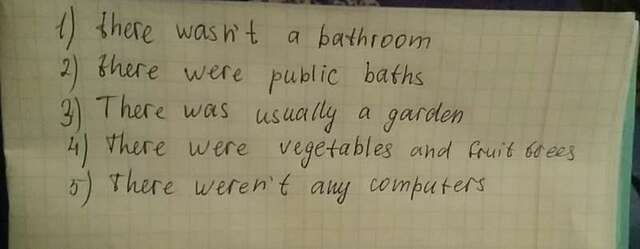 1) there wasn't a bathroom
2) there were public baths
3) There was usually a garden
4) There were vegetables and fruit trees
5) There weren't any computers